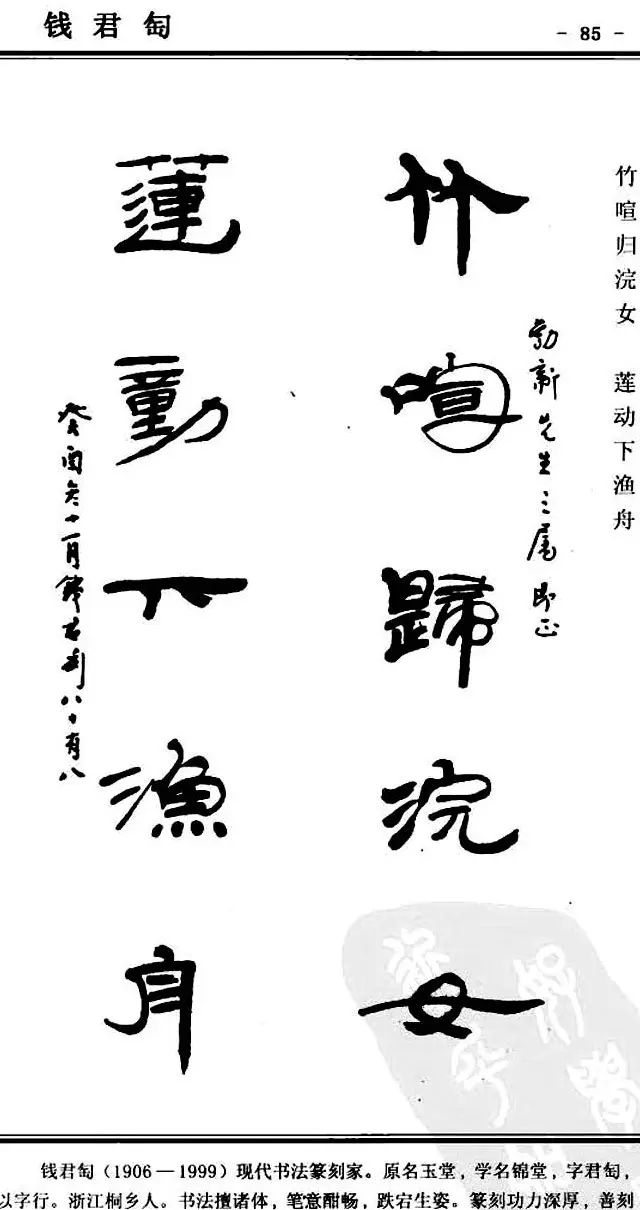 钱君匋
- 85 -
竹喧归浣女 莲动下渔舟
新先生 正
竹喧歸浣女
蓮動下漁舟
癸酉冬十一月錢君匋八十有八
钱君匋（1906—1999）现代书法篆刻家。原名玉堂，学名锦堂，字君匋，
以字行。浙江桐乡人。书法擅诸体，笔意酣畅，跌宕生姿。篆刻功力深厚，善刻